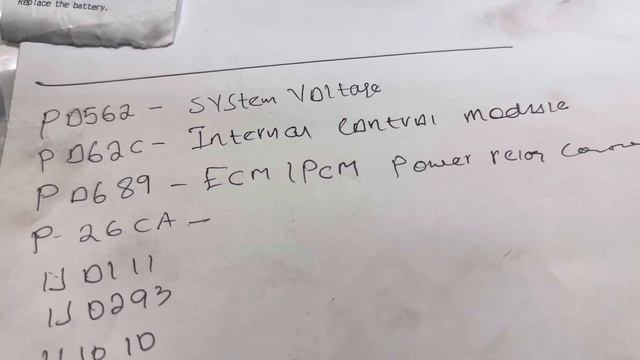 Replace the battery.
P0562 - SYStem Voltage
P062C - Internal control module
P0689 - ECM/PCM Power relay
P-26CA -
U0111
U0293
U1010